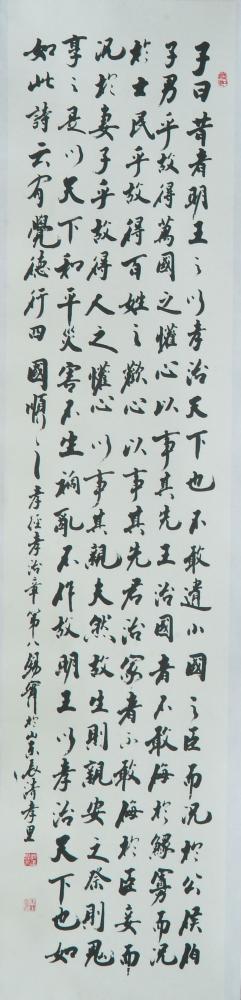 子曰昔者明王之以孝治天下也不敢遺小國之臣而況於公侯伯
子男乎故得萬國之懽心以事其先王治國者不敢侮於鰥寡而況
於士民乎故得百姓之歡心以事其先君治家者不敢侮於臣妾而
況於妻子乎故得人之懽心以事其親夫然故生則親安之祭則鬼
享之是以天下和平災害不生禍亂不作故明王以孝治天下也如
如此詩云有覺德行四國順之孝經孝治章第八於山東長清孝里